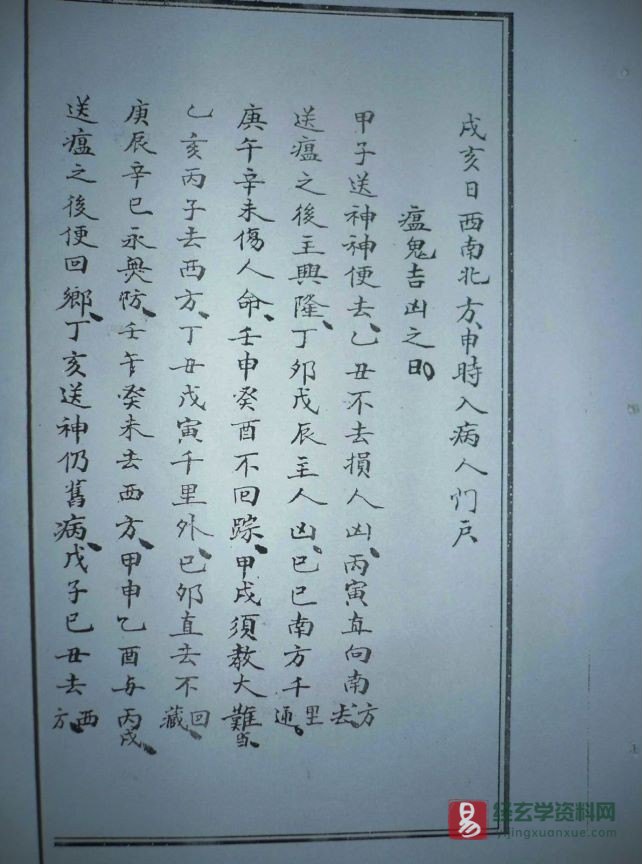 戌亥日西南北方、申時入病人门户
瘟鬼吉凶之日
甲子送神神便去、乙丑不去損人凶、丙寅直向南方去、
送瘟之後主興隆、丁卯戊辰主人凶、巳巳南方千里通。
庚午辛未傷人命、壬申癸酉不回踪、甲戌須教大難當、
乙亥丙子去西方、丁丑戊寅千里外、巳卯直去不回藏、
庚辰辛巳永無妨、壬午癸未去西方、甲申乙酉与丙戌、
送瘟之後便回鄉、丁亥送神仍舊病、戊子巳丑去西方、
易 经玄学资料网
yijingxuanxue.com